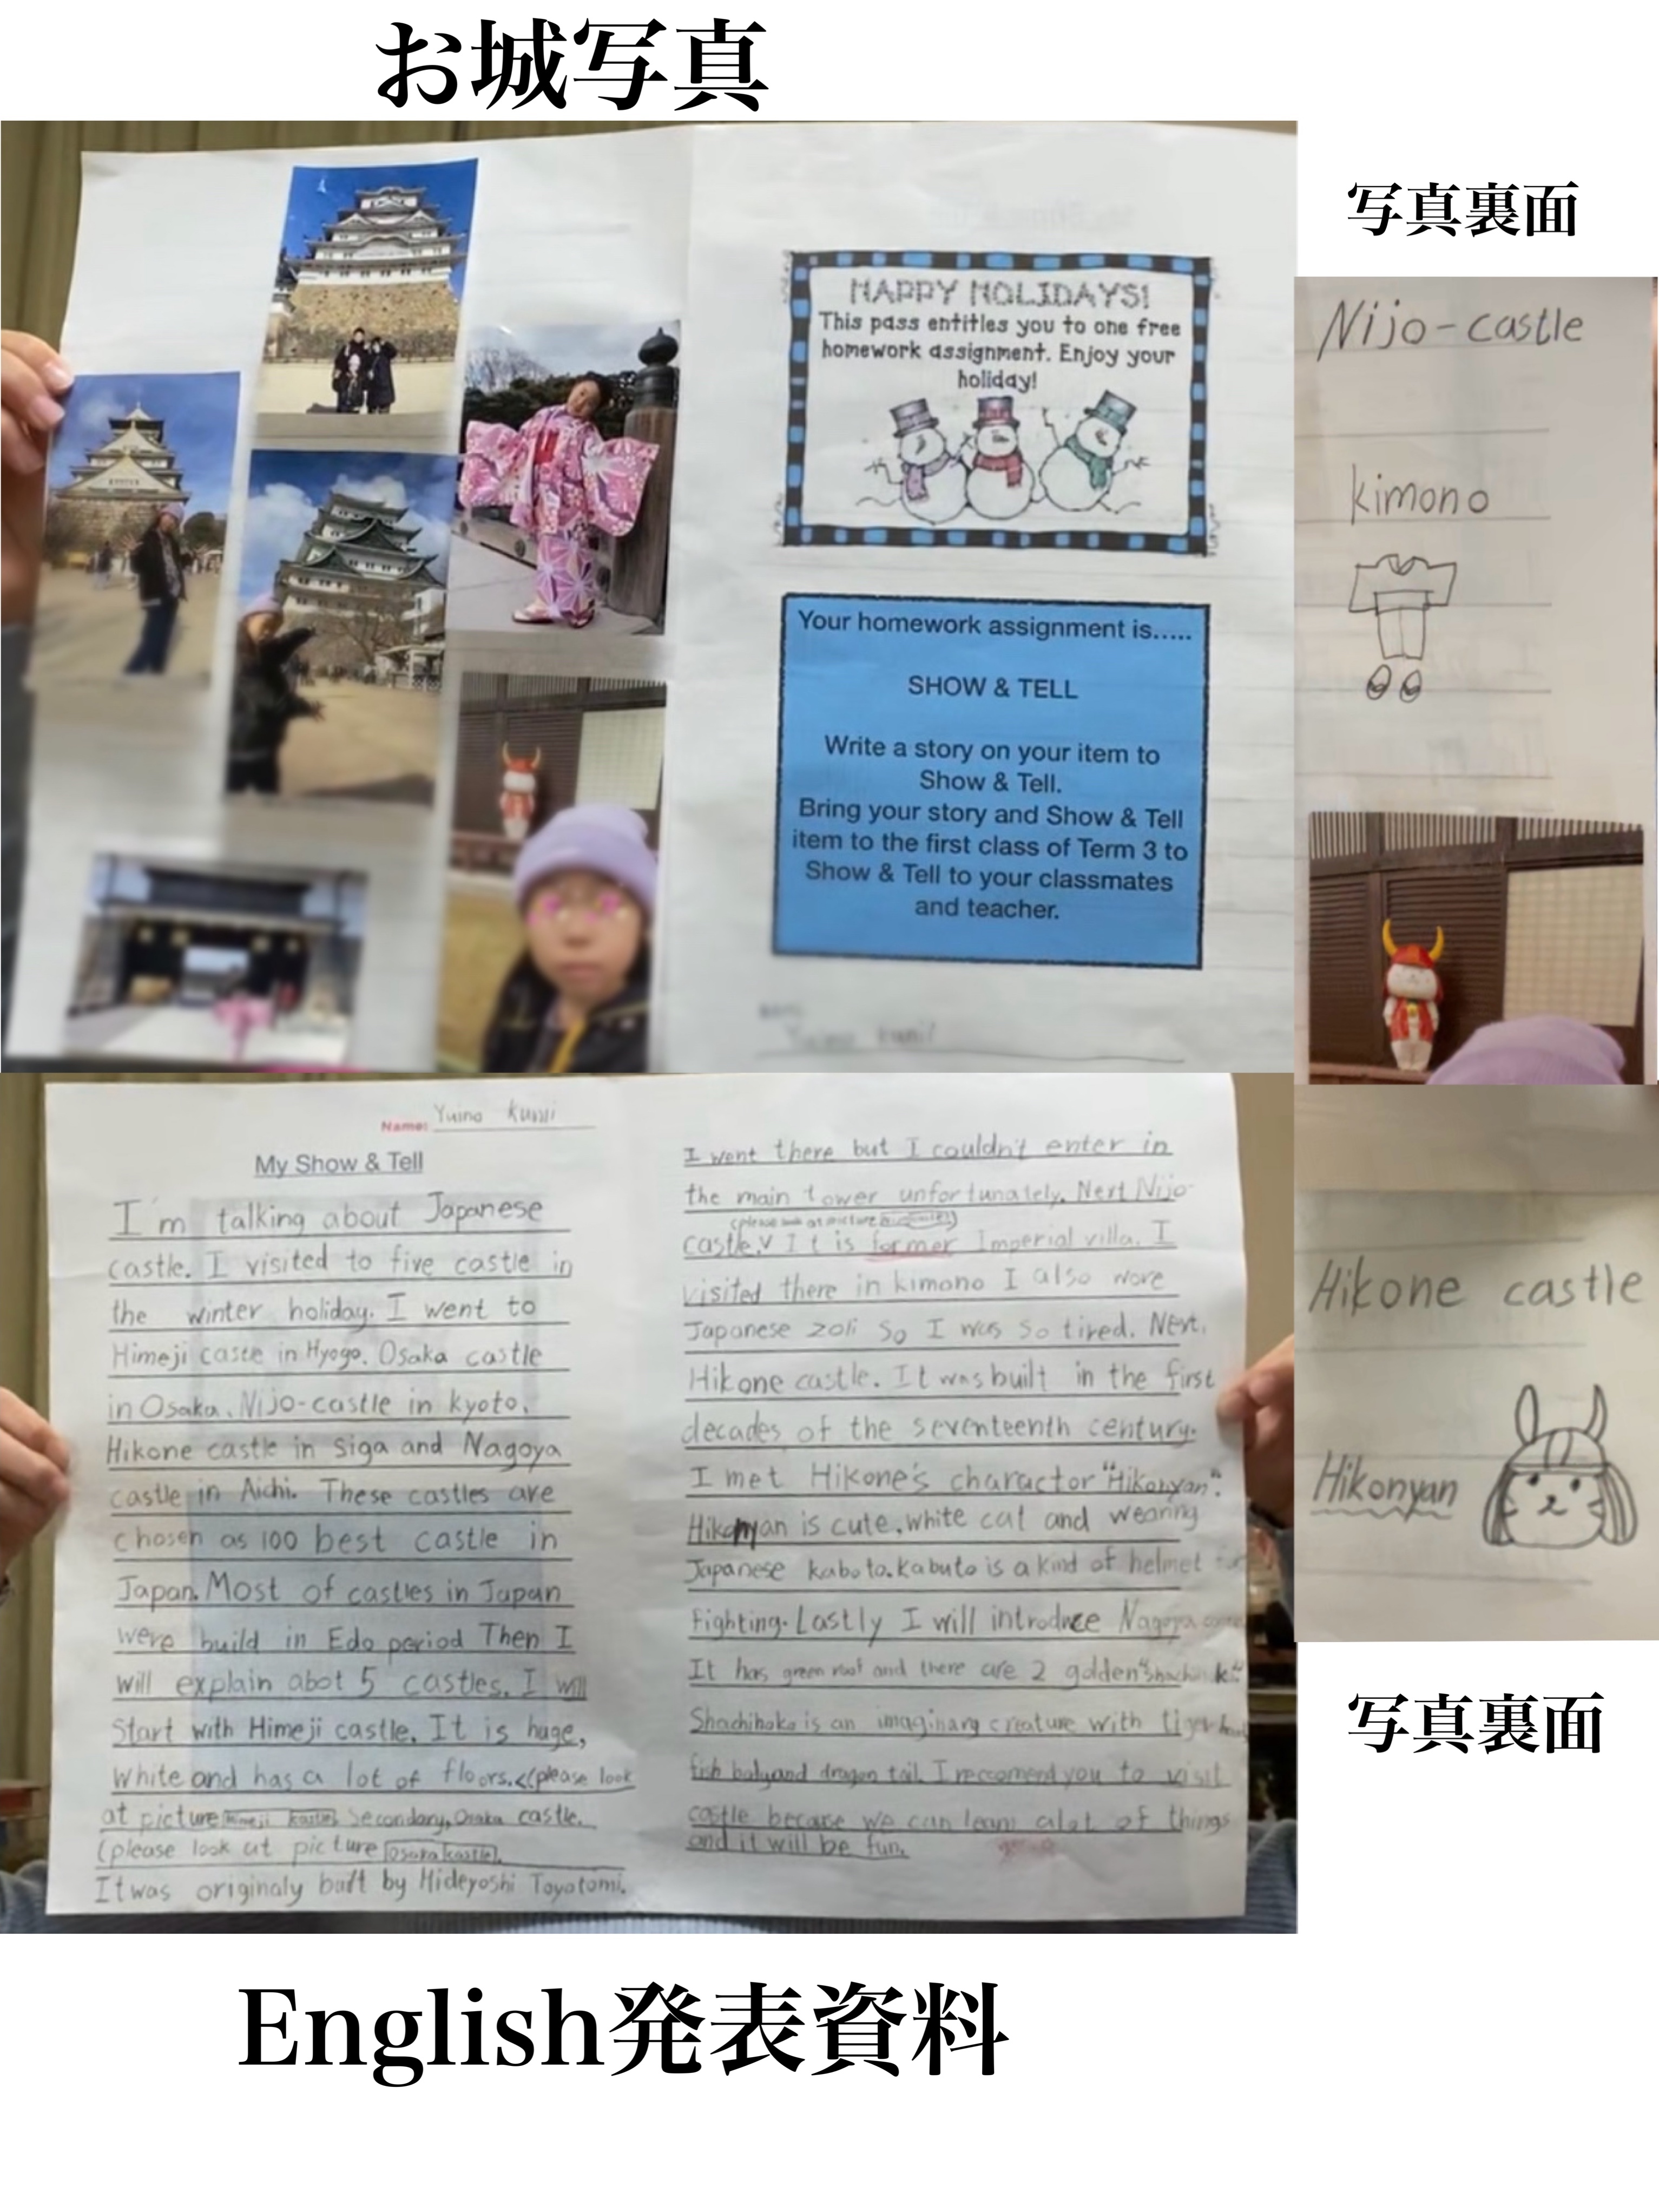 お城写真
HAPPY HOLIDAYS!
This pass entitles you to one free
homework assignment. Enjoy your
holiday!
Your homework assignment is.....
SHOW & TELL
Write a story on your item to
Show & Tell.
Bring your story and Show & Tell
item to the first class of Term 3 to
Show & Tell to your classmates
and teacher.
写真裏面
Nijo-castle
kimono
Hikone castle
Hikonyan
写真裏面
Name: Yuino
My Show & Tell
I'm talking about Japanese
castle. I visited to five castle in
the winter holiday. I went to
Himeji caste in Hyogo. Osaka castle
in Osaka, Nijo-castle in kyoto,
Hikone castle in Siga and Nagoya
castle in Aichi. These castles are
chosen as 100 best castle in
Japan. Most of castles in Japan
were build in Edo period Then I
will explain abot 5 castles. I will
Start with Himeji castle. It is huge,
white and has a lot of floors. (please look
at picture Himeji castle Secondary, Osaka castle.
(please look at picture Osaka castle).
It was originaly built by Hideyoshi Toyotomi.
I went there but I couldn't enter in
the main tower unfortunately. Next Nijo-
(please look at picture
castle. It is former Imperial villa. I
visited there in kimono I also wore
Japanese zoli so I was so tired. Next,
Hikone castle. It was built in the first
decades of the seventeenth century.
I met Hikone's charactor "Hikonyan".
Hikonyan is cute, white cat and wearing
Japanese kabuto. Kabuto is a kind of helmet
fighting. Lastly I will introduce Nagoya
It has green roof and there are 2 golden
Shachihoko is an imaginary creature with tiger
fish body and dragon tail. I reccomend you to visit
castle becase we can learn alot of things
and it will be fun.
English発表資料